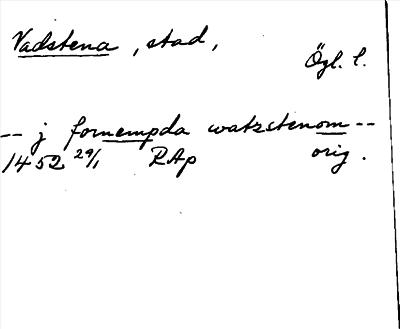 Vadstena, stad,
Ögl. l.
-- j fornempda watzstenom --
1452 29/1 RAp orig.